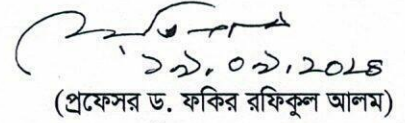 ১৯.০৯.2025
(প্রফেসর ড. ফকির রফিকুল আলম)